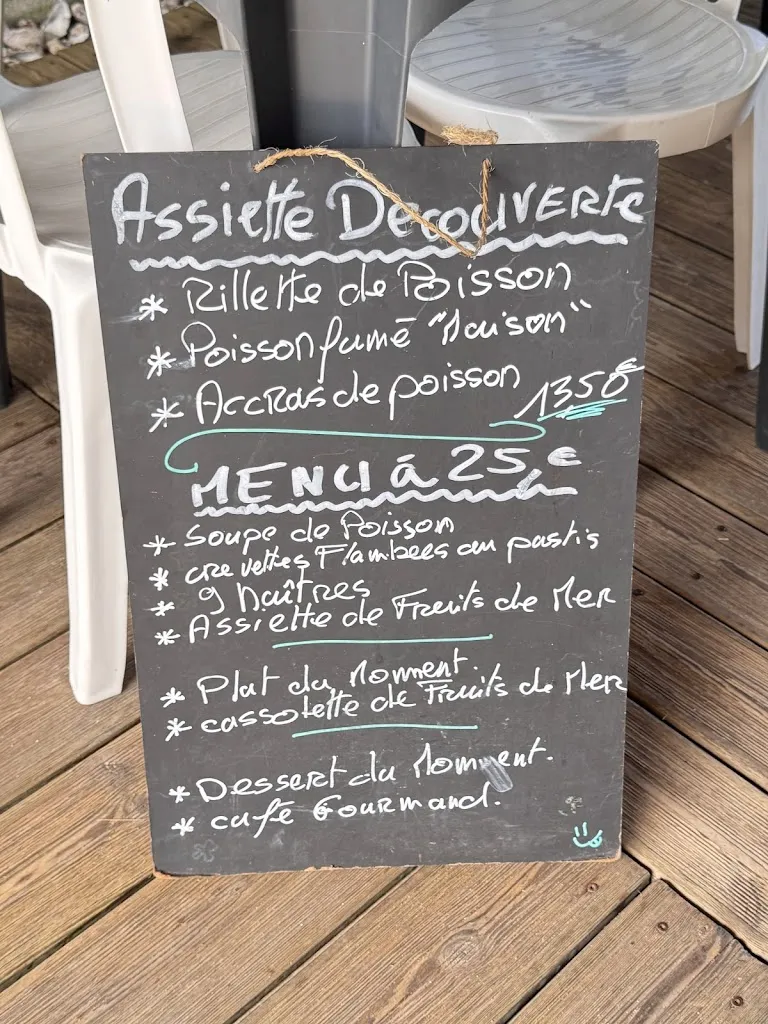 Assiette Découverte
* Rillette de Poisson
* Poisson fumé "Maison"
* Accras de poisson 13,50€
MENU à 25,€
* Soupe de Poisson
* crevettes Flambées au pastis
* 9 Huîtres
* Assiette de Fruits de Mer
* Plat du Moment.
* cassolette de Fruits de Mer
* Dessert du Momment.
* café Gourmand.